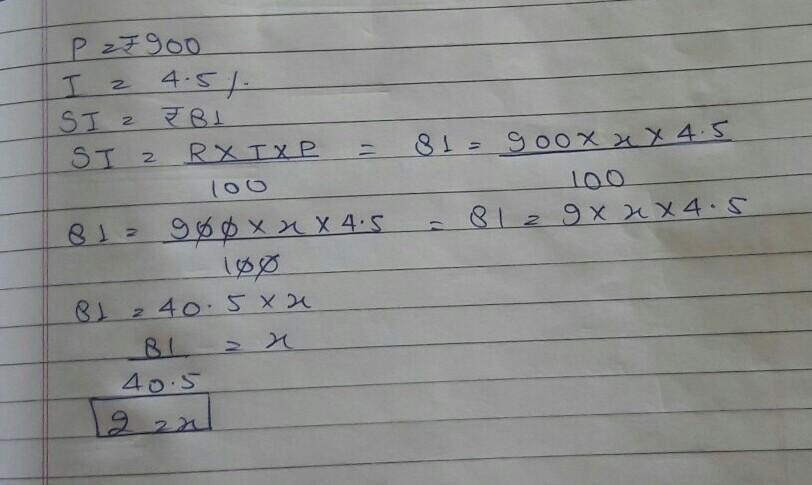 P = ₹900
I = 4.5 %.
SI = ₹81
SI = R×I×P/100 = 81 = 900×x×4.5/100
81 = 900×x×4.5/100 = 81 = 9×x×4.5
81 = 40.5×x
81/40.5 = x
2 = x